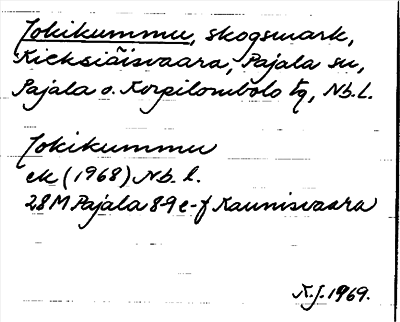 Jokikummu, skogsmark,
Kieksiäisvaara, Pajala sn,
Pajala o. Korpilombolo tg, Nb.l.
Jokikummu
ek (1968) Nb. l.
28M Pajala 8-9 e-f Kaunisvaara
K.J. 1969.